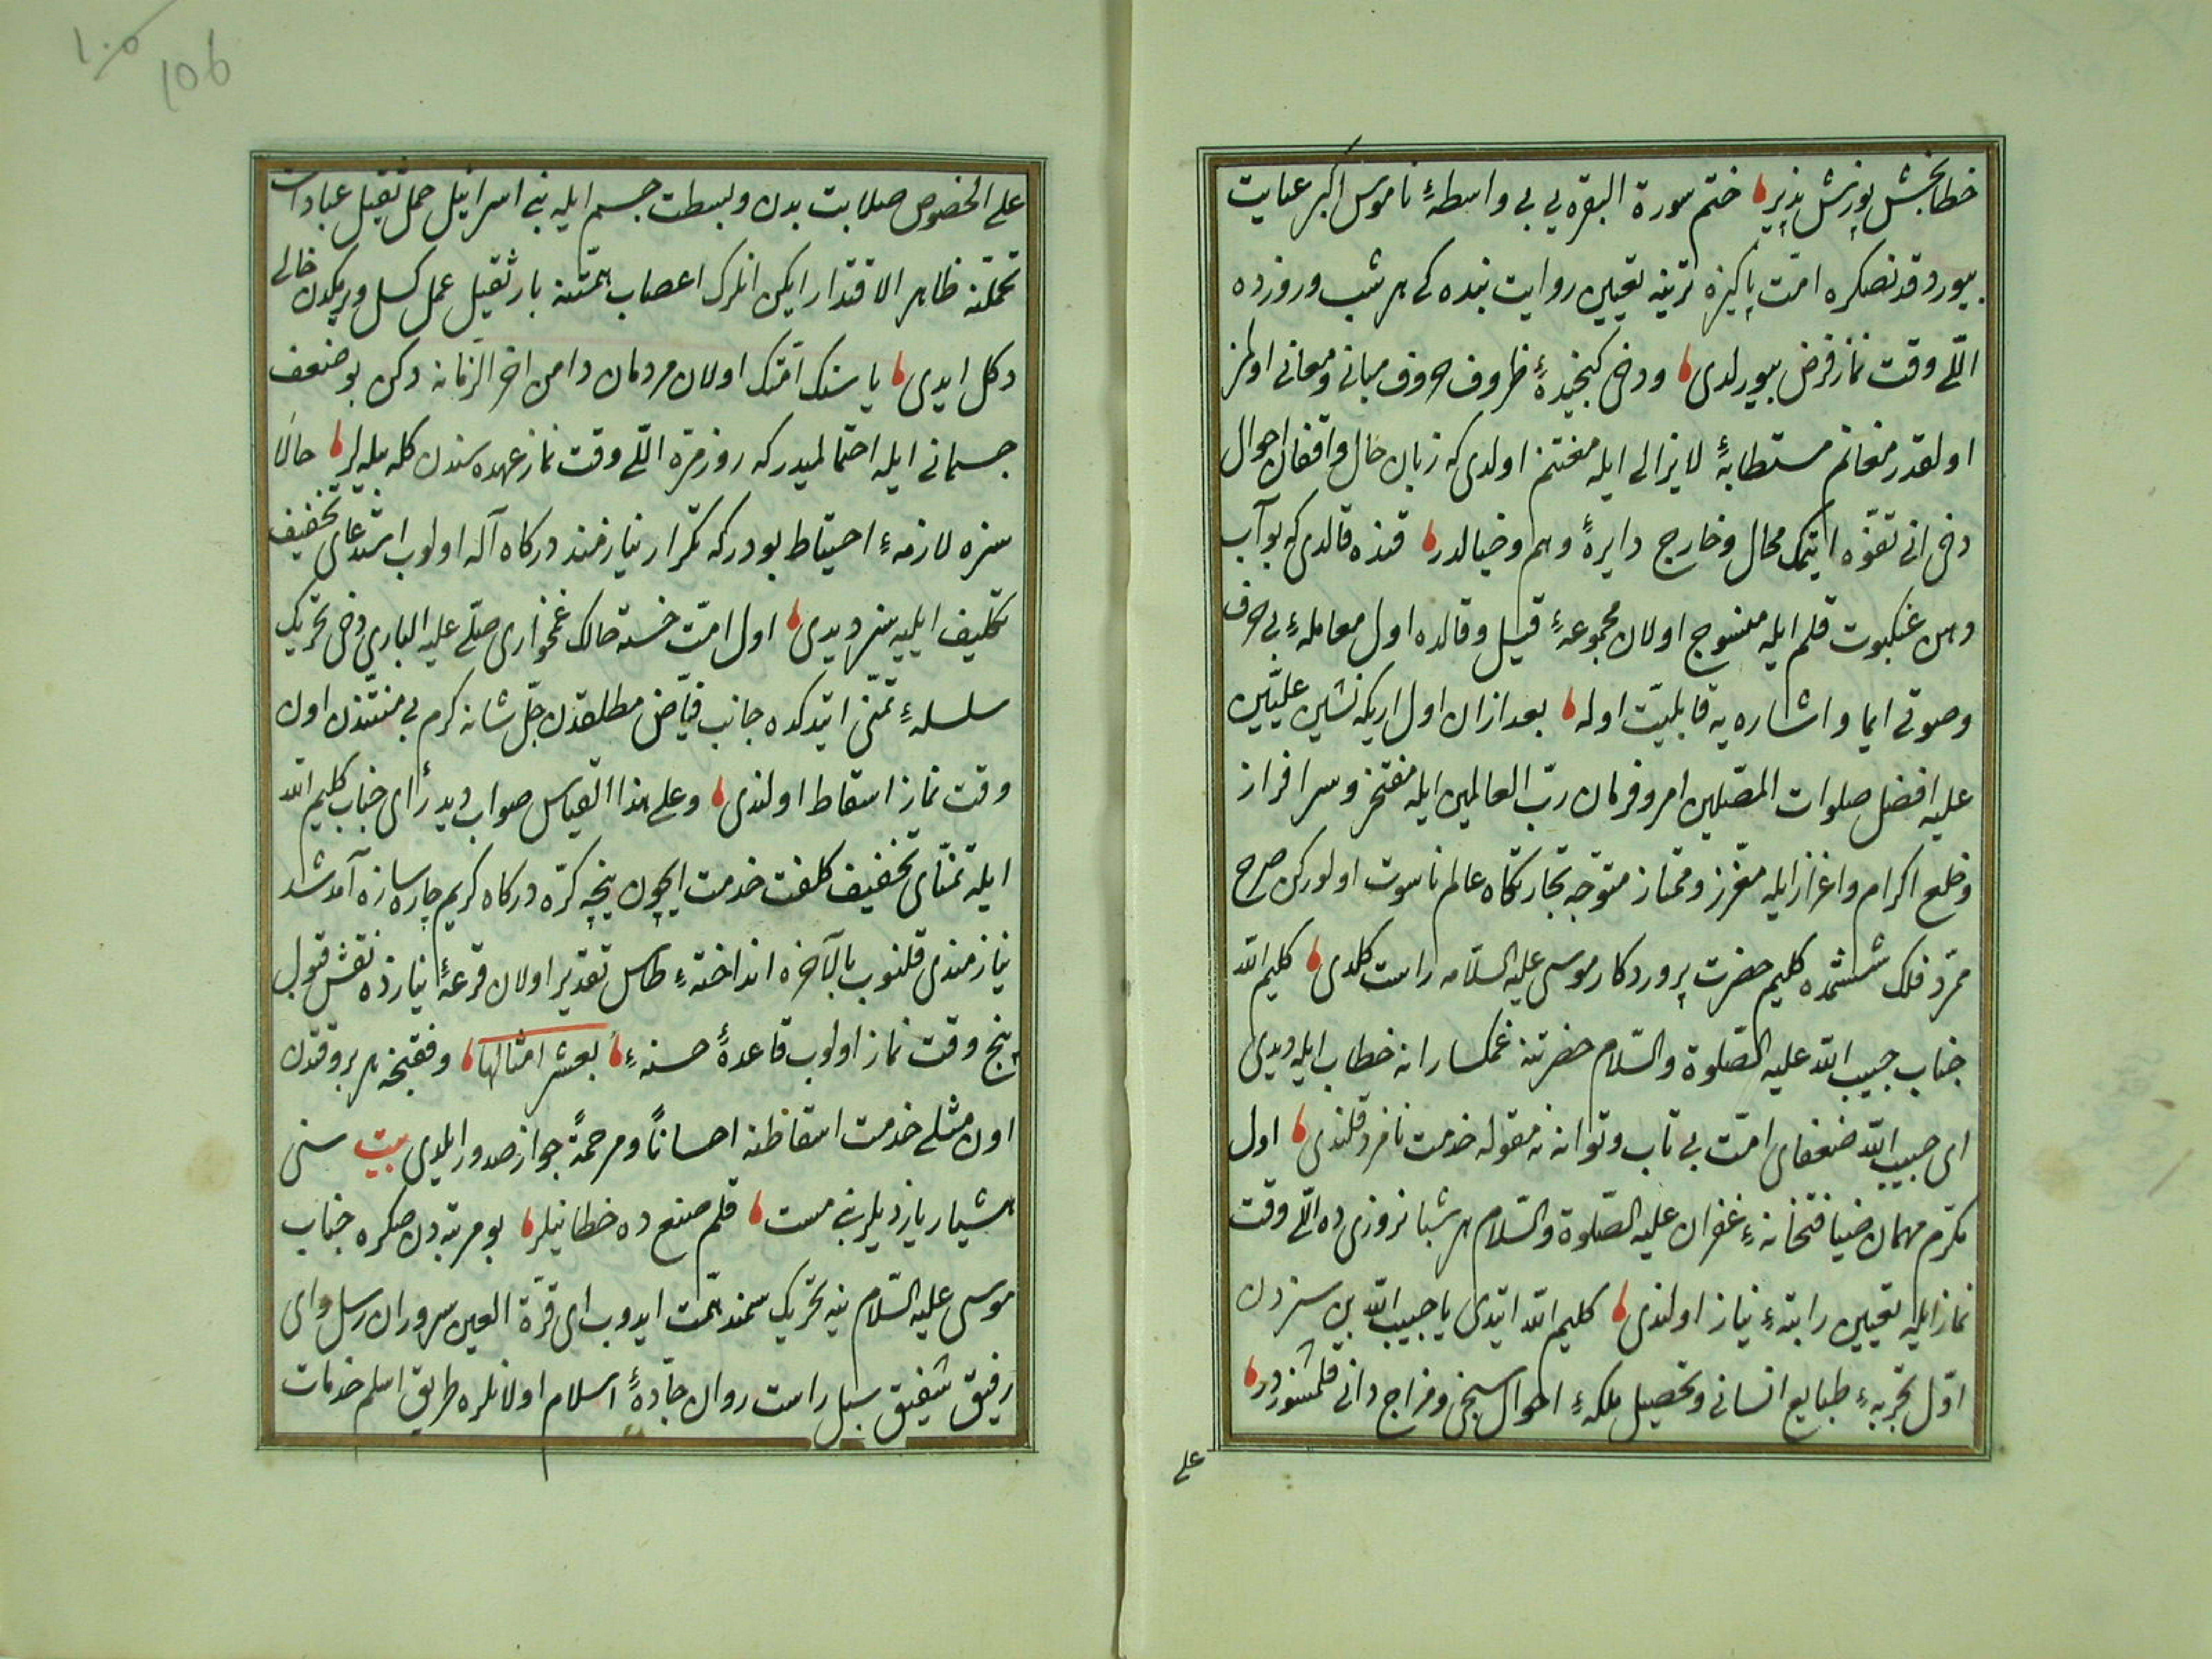 خطابخش پوزش پذیر ختم سورة البقره یی بی واسطهٔ ناموس اکبر عنایت
بیوردقدنصکره امّت پاکیزه تربتنه تعیین روایت بنده کی هر شب وروزده
اللّی وقت نماز فرض بیورلدی ودخی کنجیدهٔ ظروف حروف مبانی ومعانی اولمز
اولقدر مغانم مستطابهٔ لایزالی ایله مغتنم اولدی که زبان حال واقفان احوال
دخی انی تفوّه ایتمک محال وخارج دایرهٔ وهم وخیالدر قنده قالدی که بوآب
دهن عنکبوت قلم ایله منسوج اولان مجموعهٔ قیل وقالده اول معاملهٔ بی حرف
وصوتی ایما واشاره یه قابلیّت اوله بعد ازان اول اریکه نشین علیّین
علیه افضل صلوات المصلّین امر وفرمان ربّ العالمین ایله مفتخر وسرافراز
وخلع اکرام واعزاز ایله معزز وممتاز متوجّه تجارتکاه عالم ناسوت اولورکن صرح
ممرّد فلک ششمده کلیم حضرت پروردکار موسی علیه السّلامه راست کلدی کلیم اللّه
جناب حبیب اللّه علیه الصّلوة والسّلام حضرتنه غمکسارانه خطاب ایله دیدی
ای حبیب اللّه ضعفای امّت بی تاب وتوانه نه مقوله خدمت نامزد قلندی اول
مکرم مهمان ضیافتخانهٔ غفران علیه الصّلوة والسّلام هر شبانروزی ده اللّی وقت
نماز ایله تعیین راتبهٔ نیاز اولندی کلیم اللّه ایتدی یا حبیب اللّه بن سزدن
اوّل تجربهٔ طبایع انسانی وتحصیل ملکهٔ احوال سنجی ومزاج دانی قلمشزدر
علی
106
علی الخصوص صلابت بدن وبسطت جسم ایله بنی اسرائیل حمل ثقیل عبادات
تحمّلنه ظاهر الاقتدار ایکن انلرک اعصاب همّتنه بار ثقیل عمل کسل ویرمکدن خالی
دکل ایدی یا سنک امّتک اولان مردمان دامن اخر الزمانه دکن بو ضعف
جسمانی ایله احتمالمیدر که روزمرّه اللّی وقت نماز عهده سندن کله بیله لر حالا
سزه لازمهٔ احتیاط بودر که تکرار نیازمند درکاه آله اولوب استدعای تخفیف
تکلیف ایلیه سز دیدی اول امّت خسته حالک غمخواری صلّی علیه الباری دخی تحریک
سلسلهٔ تمنّی ایتدکده جانب فیّاض مطلقدن جلّ شانه کرم بی منتندن اون
وقت نماز اسقاط اولندی وعلی هذا القیاس صواب دید رأای جناب کلیم اللّه
ایله تمنّای تخفیف کلفت خدمت ایچون نیچه کرّه درکاه کریم چاره سازه آمد شد
نیازمندی قلنوب بالآخره انداختهٔ طاس تقدیر اولان قرعهٔ نیازده نقش قبول
پنج وقت نماز اولوب قاعدهٔ حسنهٔ بعشر امثالها وفقنجه هر بر وقتدن
اون مثلی خدمت اسقاطنه احسانًا ومرحمةً جواز صدور ایلدی بیت سنی
هشیار یازدیلر بنی مست قلم صنع ده خطا نیلر بو مرتبه دن صکره جناب
موسی علیه السّلام ینه تحریک سمند همّت ایدوب ای قرّة العین سروران رسل وای
رفیق شفیق سبل راست روان جادّهٔ اسلام اولانلره طریق اسلم خدمات